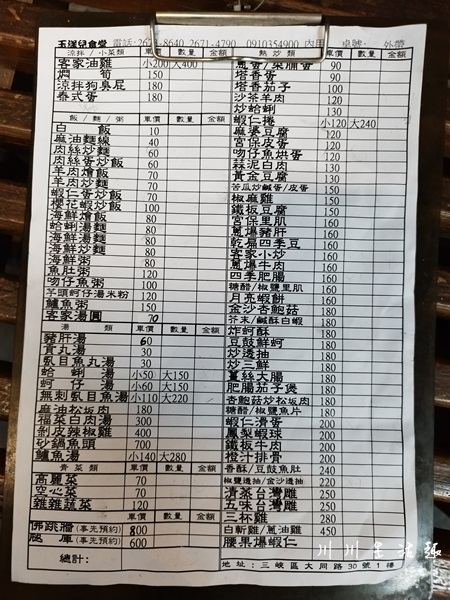 玉漾兒食堂 電話:2671-8640 2671-4790 0910354900 內用 桌號: 外帶
涼拌/小菜類 車價 數量 金額
客家油雞 小200 大400
燜筍 150
涼拌狗臭屁 180
泰式蛋 180
飯/麵/粥 車價 數量 金額
白飯 10
麻油麵線 40
肉絲炒麵 60
肉絲蛋炒飯 60
羊肉燴飯 70
羊肉炒麵 70
蝦仁蛋炒飯 70
櫻花蝦炒飯 100
海鮮燴飯 80
蛤蜊湯麵 80
海鮮湯麵 80
海鮮炒麵 80
海鮮粥 80
魚肚粥 120
吻仔魚粥 100
芋頭蚵仔湯米粉 120
鱸魚粥 150
客家湯圓 70
湯類 車價 數量 金額
豬肝湯 60
貢丸湯 30
虱目魚丸湯 30
蛤蜊湯 小50 大150
蚵仔湯 小60 大150
無刺虱目魚湯 小110 大220
麻油松坂肉 180
福菜白肉湯 300
剝皮辣椒雞 400
砂鍋魚頭 700
鱸魚湯 小140 大280
青菜類 車價 數量 金額
高麗菜 70
空心菜 70
雜雜蔬菜 120
佛跳牆(事先預約) 800
(事先預約) 600
總計:
熱炒類 車價 數量 金額
蔥蛋/菜脯蛋 90
塔香蛋 90
塔香茄子 100
沙茶羊肉 130
炒蛤蜊 130
蝦仁捲 小120 大240
麻婆豆腐 120
宮保皮蛋 120
吻仔魚烘蛋 120
蒜泥白肉 130
黃金豆腐 130
苦瓜炒鹹蛋/皮蛋 150
椒麻雞 160
鐵板豆腐 160
宮保里肌 160
蔥爆豬肝 160
乾扁四季豆 160
客家小炒 160
蔥爆牛肉 160
四季肥腸 160
糖醋/椒鹽里肌 160
月亮蝦餅 160
金沙杏鮑菇 160
芥末/鹹酥白蝦 180
炸蚵酥 180
豆鼓鮮蚵 180
炒透抽 180
炒三鮮 180
薑絲大腸 180
肥腸茄子煲 180
杏鮑菇炒松坂肉 180
糖醋/椒鹽魚片 180
蝦仁滑蛋 200
鳳梨蝦球 200
鐵板牛肉 200
橙汁排骨 200
香酥/豆鼓魚肚 240
椒鹽透抽/金沙透抽 220
清蒸台灣鯛 250
五味台灣鯛 250
三杯雞 280
白斬雞/蔥油雞 450
腰果爆蝦仁
地址:三峽區大同路30號1樓
川川